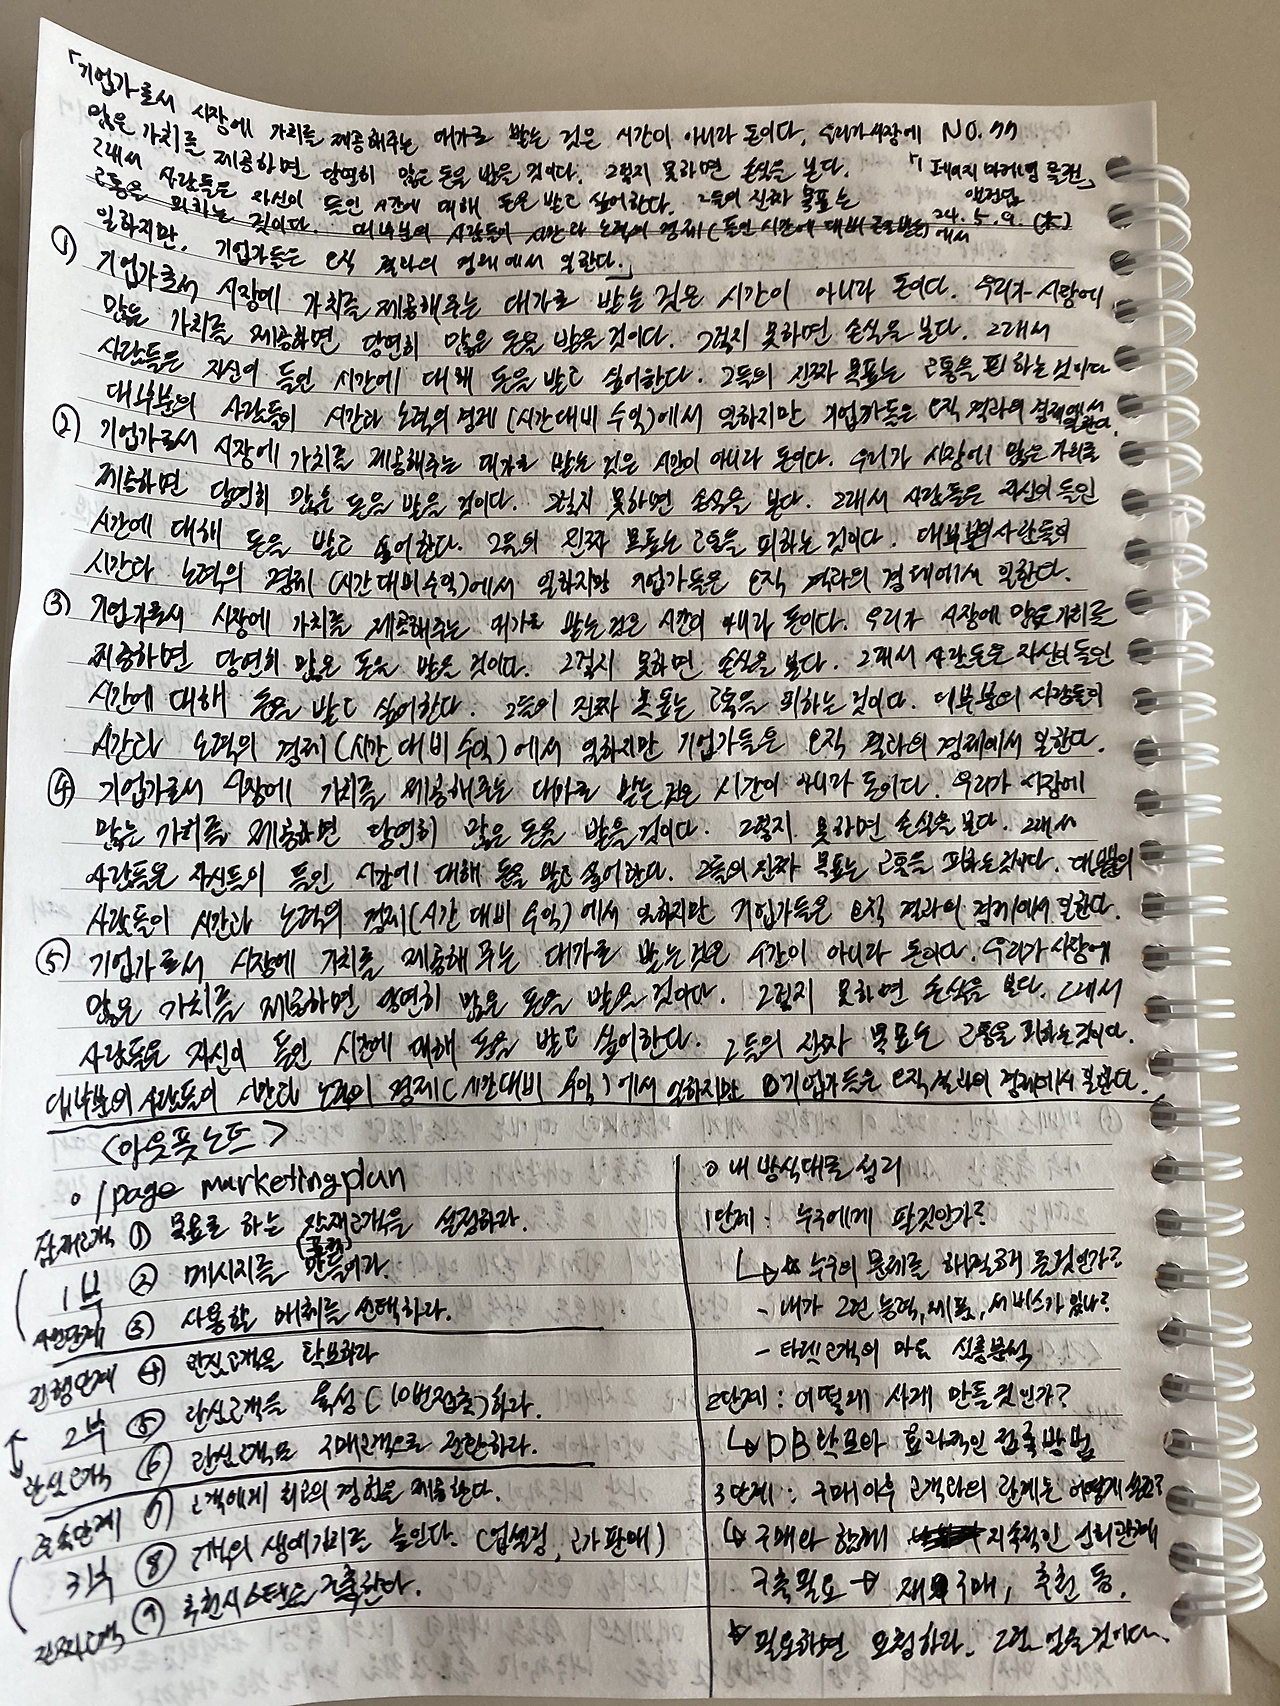 「기업가로서 시장에 가치를 제공해주는 대가로 받는 것은 시간이 아니라 돈이다. 우리가 시장에 NO.77
많은 가치를 제공하면 당연히 많은 돈을 받을 것이다. 그렇지 못하면 손식을 본다. 「1페이지 마케팅 플랜」
그래서 사람들은 자신이 들인 시간에 대해 돈을 받고 싶어한다. 그들의 진짜 목표는
고통을 피하는 것이다. 대부분의 사람들이 시간과 노력의 경제(들인 시간에 대비 에서 24. 5. 9. (木)
일하지만, 기업가들은 오직 결과의 경제에서 일한다.」
① 기업가로서 시장에 가치를 제공해주는 대가로 받는 것은 시간이 아니라 돈이다. 우리가 시장에
많은 가치를 제공하면 당연히 많은 돈을 받을 것이다. 그렇지 못하면 손식을 본다. 그래서
사람들은 자신이 들인 시간에 대해 돈을 받고 싶어한다. 그들의 진짜 목표는 고통을 피하는 것이다
대부분의 사람들이 시간과 노력의 경제 (시간대비 수익)에서 일하지만 기업가들은 오직 결과의 경제에서 일한다.
② 기업가로서 시장에 가치를 제공해주는 대가로 받는 것은 시간이 아니라 돈이다. 우리가 시장에 많은 가치를
제공하면 당연히 많은 돈을 받을 것이다. 그렇지 못하면 손식을 본다. 그래서 사람들은 자신이 들인
시간에 대해 돈을 받고 싶어한다. 그들의 진짜 목표는 고통을 피하는 것이다. 대부분의 사람들의
시간과 노력의 경제 (시간대비수익)에서 일하지만 기업가들은 오직 결과의 경제에서 일한다.
③ 기업가로서 시장에 가치를 제공해주는 대가로 받는 것은 시간이 아니라 돈이다. 우리가 시장에 많은 가치를
제공하면 당연히 많은 돈을 받을 것이다. 그렇지 못하면 손식을 본다. 그래서 사람들은 자신이 들인
시간에 대해 돈을 받고 싶어한다. 그들의 진짜 목표는 고통을 피하는 것이다. 대부분의 사람들이
시간과 노력의 경제(시간 대비 수익)에서 일하지만 기업가들은 오직 결과의 경제에서 일한다.
④ 기업가로서 시장에 가치를 제공해주는 대가로 받는 것은 시간이 아니라 돈이다. 우리가 시장에
많은 가치를 제공하면 당연히 많은 돈을 받을 것이다. 그렇지 못하면 손식을 본다. 그래서
사람들은 자신들이 들인 시간에 대해 돈을 받고 싶어한다. 그들의 진짜 목표는 고통을 피하는 것이다. 대부분의
사람들이 시간과 노력의 경제(시간 대비 수익)에서 일하지만 기업가들은 오직 결과의 경제에서 일한다.
⑤ 기업가로서 시장에 가치를 제공해 주는 대가로 받는 것은 시간이 아니라 돈이다. 우리가 시장에
많은 가치를 제공하면 당연히 많은 돈을 받을 것이다. 그렇지 못하면 손식을 본다. 그래서
사람들은 자신이 들인 시간에 대해 돈을 받고 싶어한다. 그들의 진짜 목표는 고통을 피하는 것이다.
대부분의 사람들이 시간과 노력의 경제(시간대비 수익)에서 일하지만 기업가들은 오직 결과의 경제에서 일한다.
<아웃풋노트>
o 1page marketing plan
잠재고객 ① 목표로 하는 잠재고객을 설정하라.
1부 ② 메시지를 만들어라.
사전단계 ③ 사용할 매체를 선택하라.
진행단계 ④ 관심고객을 확보하라
2부 ⑤ 관심고객을 육성(10번접촉)하라.
관심고객 ⑥ 관심고객을 구매고객으로 전환하라.
후속단계 ⑦ 고객에게 최고의 경험을 제공한다.
3부 ⑧ 고객의 생애가치를 높인다. (업셀링, 고가 판매)
진짜고객 ⑨ 추천시스템을 구축한다.
o 내 방식대로 정리
1단계 : 누구에게 팔것인가?
↳ 누구의 문제를 해결해 줄것인가?
- 내가 그런 능력, 제품, 서비스가 있나?
- 타겟고객의 마음 심층분석
2단계 : 어떻게 사게 만들것인가?
↳ DB확보와 효과적인 접촉방법
3단계 : 구매이후 고객과의 관계는 어떻게
↳ 구매와 함께 지속적인 신뢰관계
구축필요 → 재구매, 추천 등.
필요하면 요청하라. 그럼 얻을 것이다.